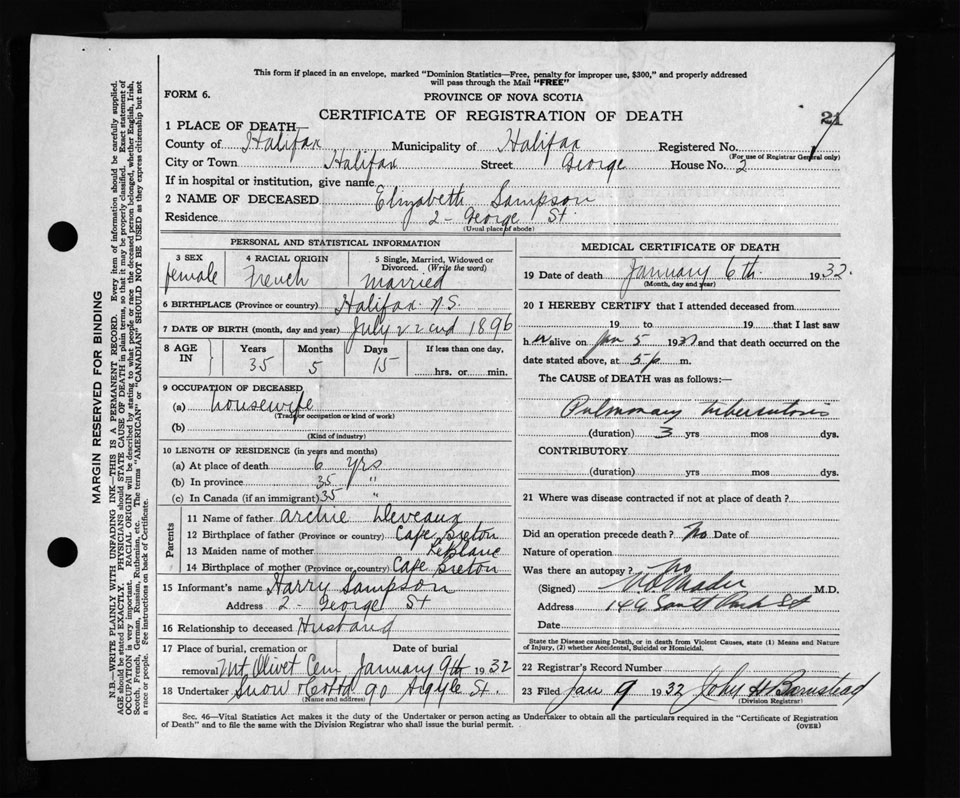 This form if placed in an envelope, marked "Dominion Statistics—Free, penalty for improper use, $300," and properly addressed
will pass through the Mail "FREE"
FORM 6.
PROVINCE OF NOVA SCOTIA
CERTIFICATE OF REGISTRATION OF DEATH
21
1 PLACE OF DEATH
County of Halifax Municipality of Halifax Registered No.
(For use of Registrar General only)
City or Town Halifax Street George House No. 2
If in hospital or institution, give name
2 NAME OF DECEASED Elizabeth Sampson
Residence 2 - George St.
(Usual place of abode)
PERSONAL AND STATISTICAL INFORMATION
3 SEX 4 RACIAL ORIGIN 5 Single, Married, Widowed or
Divorced. (Write the word)
female French married
6 BIRTHPLACE (Province or country) Halifax N.S.
7 DATE OF BIRTH (month, day and year) July 22nd 1896
8 AGE IN Years Months Days If less than one day,
35 5 15 hrs. or min.
9 OCCUPATION OF DECEASED
(a) housewife
(Trade or occupation or kind of work)
(b)
(Kind of industry)
10 LENGTH OF RESIDENCE (in years and months)
(a) At place of death 6 yrs
(b) In province 35 "
(c) In Canada (if an immigrant) 35 "
Parents
11 Name of father Archie Deveaux
12 Birthplace of father (Province or country) Cape Breton
13 Maiden name of mother LeBlanc
14 Birthplace of mother (Province or country) Cape Breton
15 Informant's name Harry Sampson
Address 2 - George St
16 Relationship to deceased Husband
17 Place of burial, cremation or Date of burial
removal Mt Olivet Cem January 9th 1932
18 Undertaker Snow 90 Argyle St.
(Name and address)
MEDICAL CERTIFICATE OF DEATH
19 Date of death January 6th 1932.
(Month, day and year)
20 I HEREBY CERTIFY that I attended deceased from
19 to 19 that I last saw
h er alive on Jan 5 193 and that death occurred on the
date stated above, at 5 p m.
The CAUSE of DEATH was as follows:—
Pulmonary tuberculosis
(duration) 3 yrs mos dys.
CONTRIBUTORY
(duration) yrs mos dys.
21 Where was disease contracted if not at place of death?
Did an operation precede death? No Date of
Nature of operation
Was there an autopsy? no
(Signed) Mader M.D.
Address South Park St
Date
State the Disease causing Death, or in death from Violent Causes, state (1) Means and Nature
of Injury, (2) whether Accidental, Suicidal or Homicidal.
22 Registrar's Record Number
23 Filed Jan 9 1932 John H Barnstead
(Division Registrar)
Sec. 46—Vital Statistics Act makes it the duty of the Undertaker or person acting as Undertaker to obtain all the particulars required in the "Certificate of Registration
of Death" and to file the same with the Division Registrar who shall issue the burial permit.
(OVER)
MARGIN RESERVED FOR BINDING
N.B.—WRITE PLAINLY WITH UNFADING INK—THIS IS A PERMANENT RECORD. Every item of information should be carefully supplied.
AGE should be stated EXACTLY. PHYSICIANS should STATE CAUSE OF DEATH in plain terms, so that it may be properly classified. Exact statement of
OCCUPATION is very important. RACIAL ORIGIN will be described by stating to what people or race the deceased person belonged, whether English, Irish,
Scotch, French, German, Russian, Ruthenian, etc. The terms "AMERICAN" or "CANADIAN" SHOULD NOT BE USED as they express citizenship but not
a race or people. See instructions on back of Certificate.